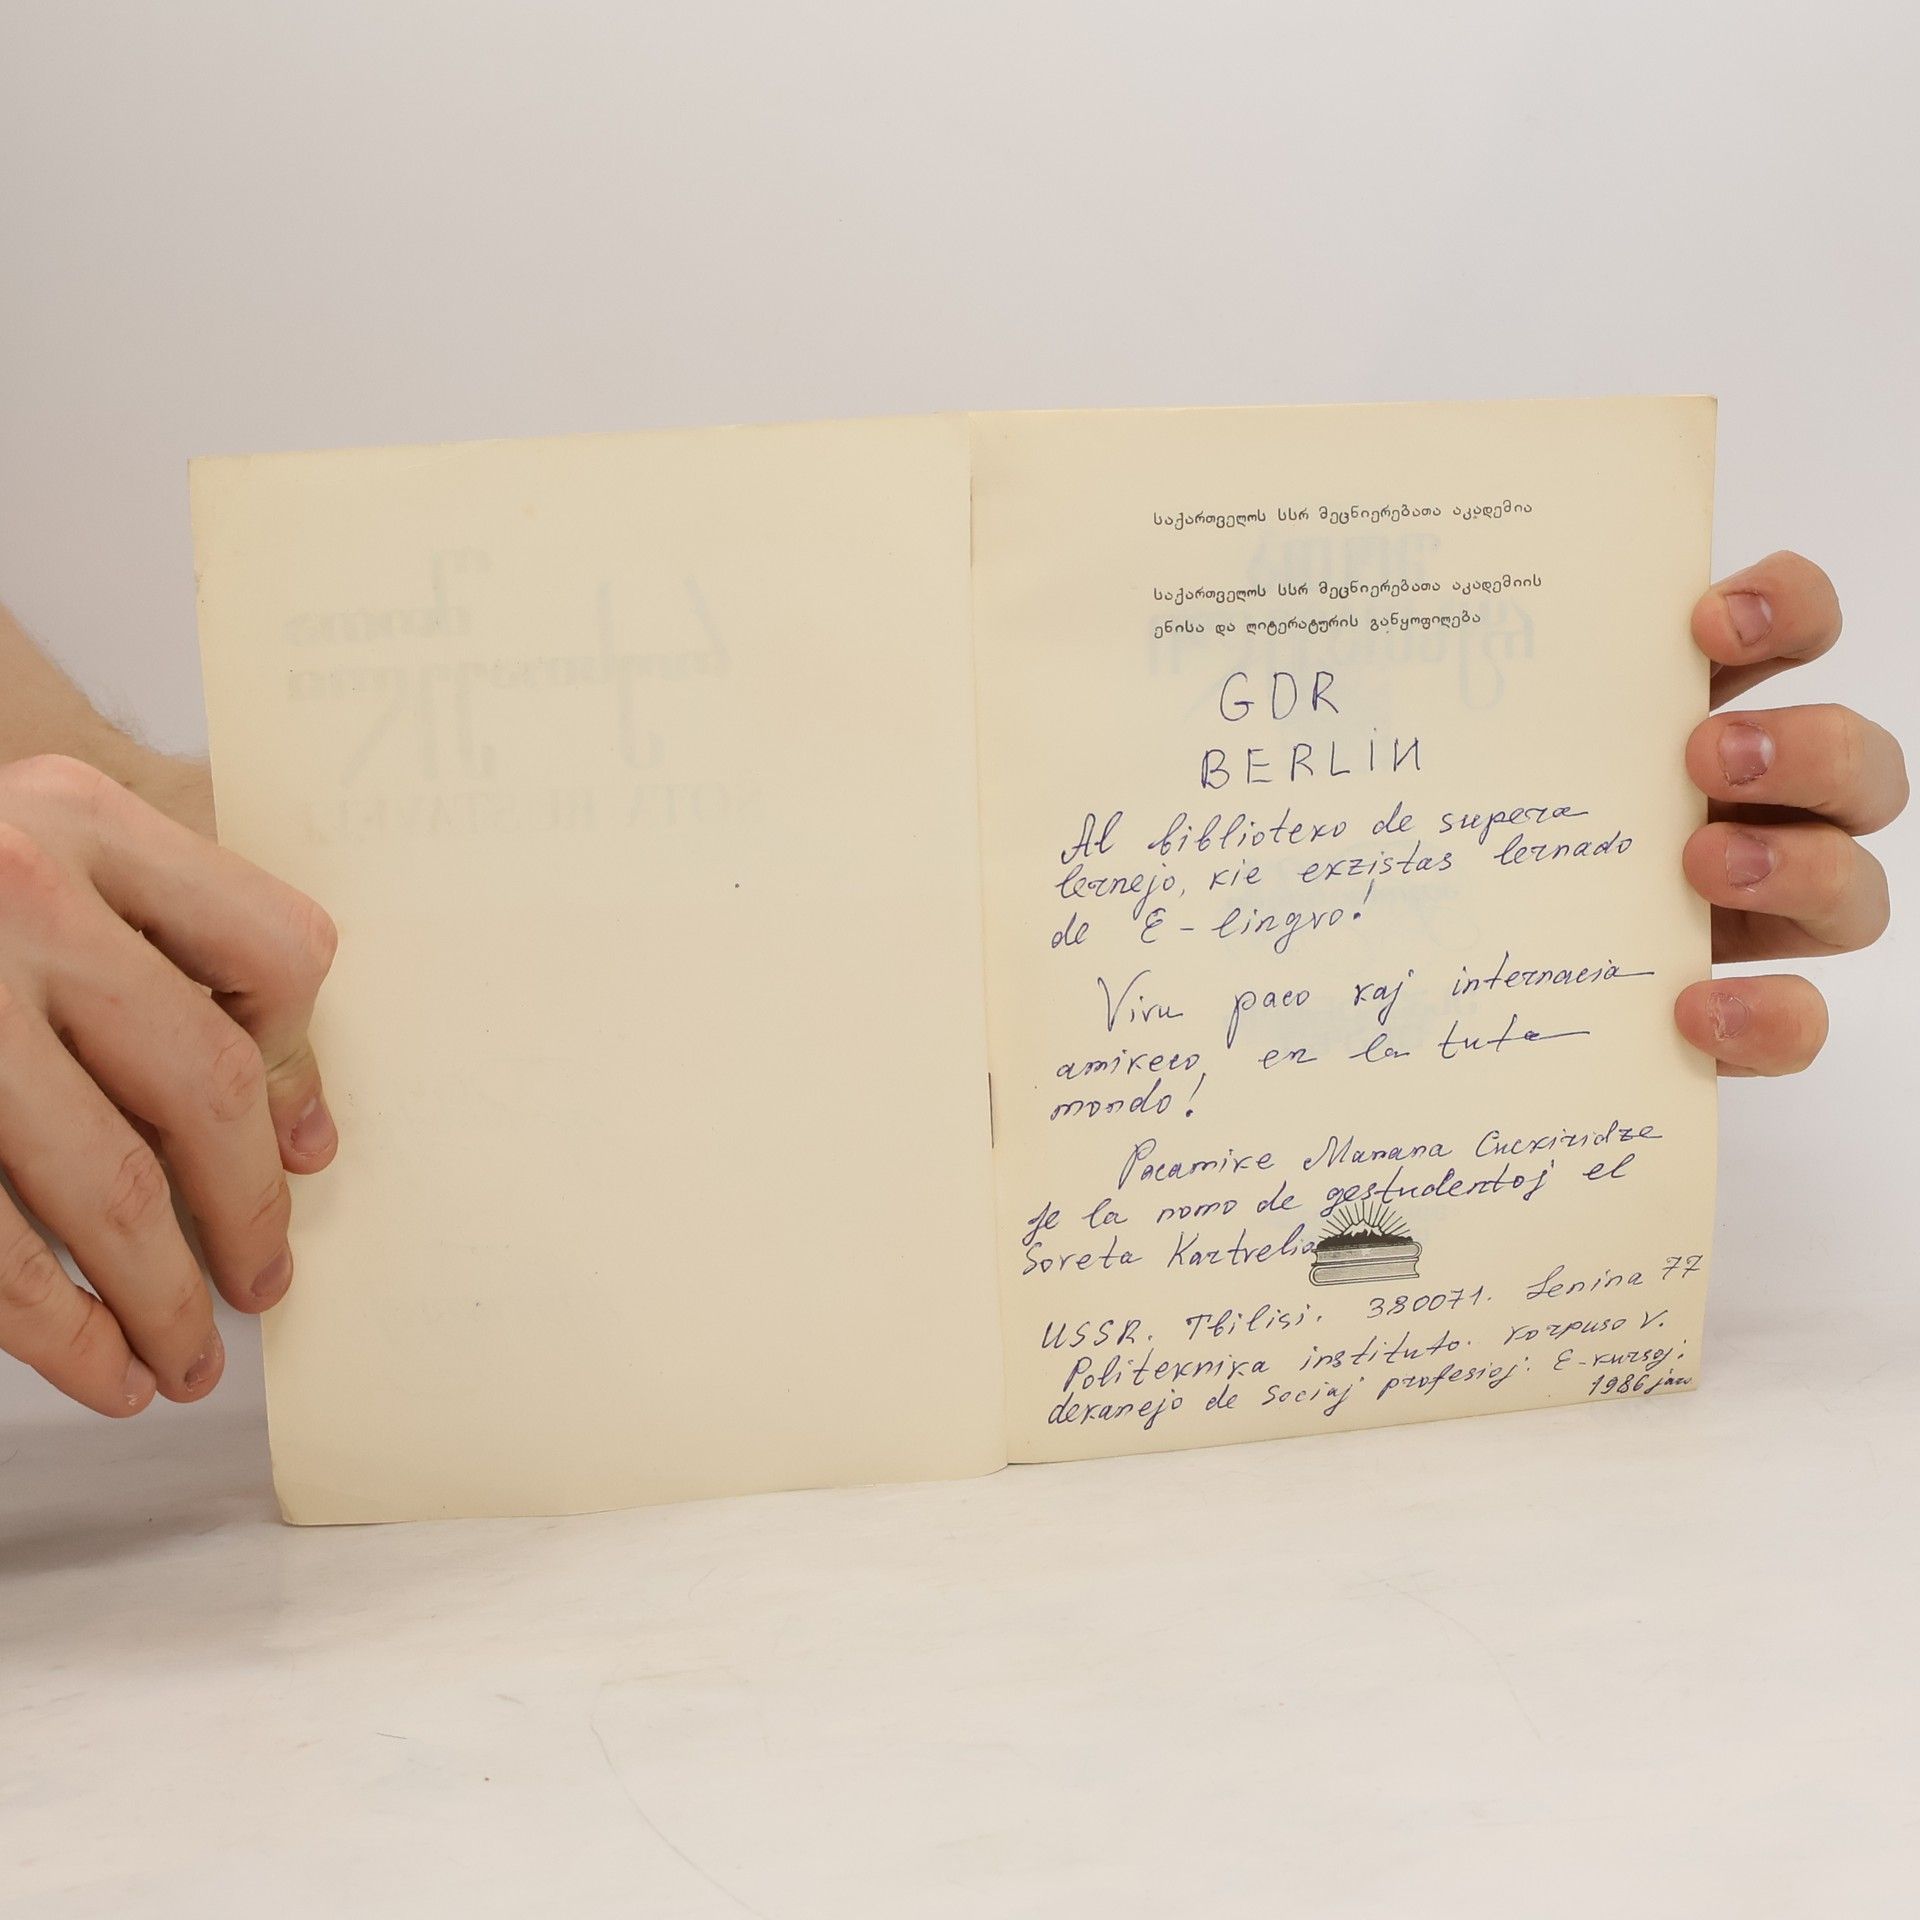 საქართველოს სსრ მეცნიერებათა აკადემია
საქართველოს სსრ მეცნიერებათა აკადემიის
ენისა და ლიტერატურის განყოფილება
GDR
BERLIN
Al biblioteko de supera
lernejo, kie ekzistas lernado
de E-lingvo!
Vivu paco kaj internacia
amikeco en la tuta
mondo!
Pacamike Manana Cuckiridze
je la nomo de gestudentoj el
Soveta Kartvelio
USSR. Tbilisi. 380071. Lenina 77
Politeknika instituto. Korpuso V.
dekanejo de Sociaj profesioj. E-kursoj.
1986 jaro